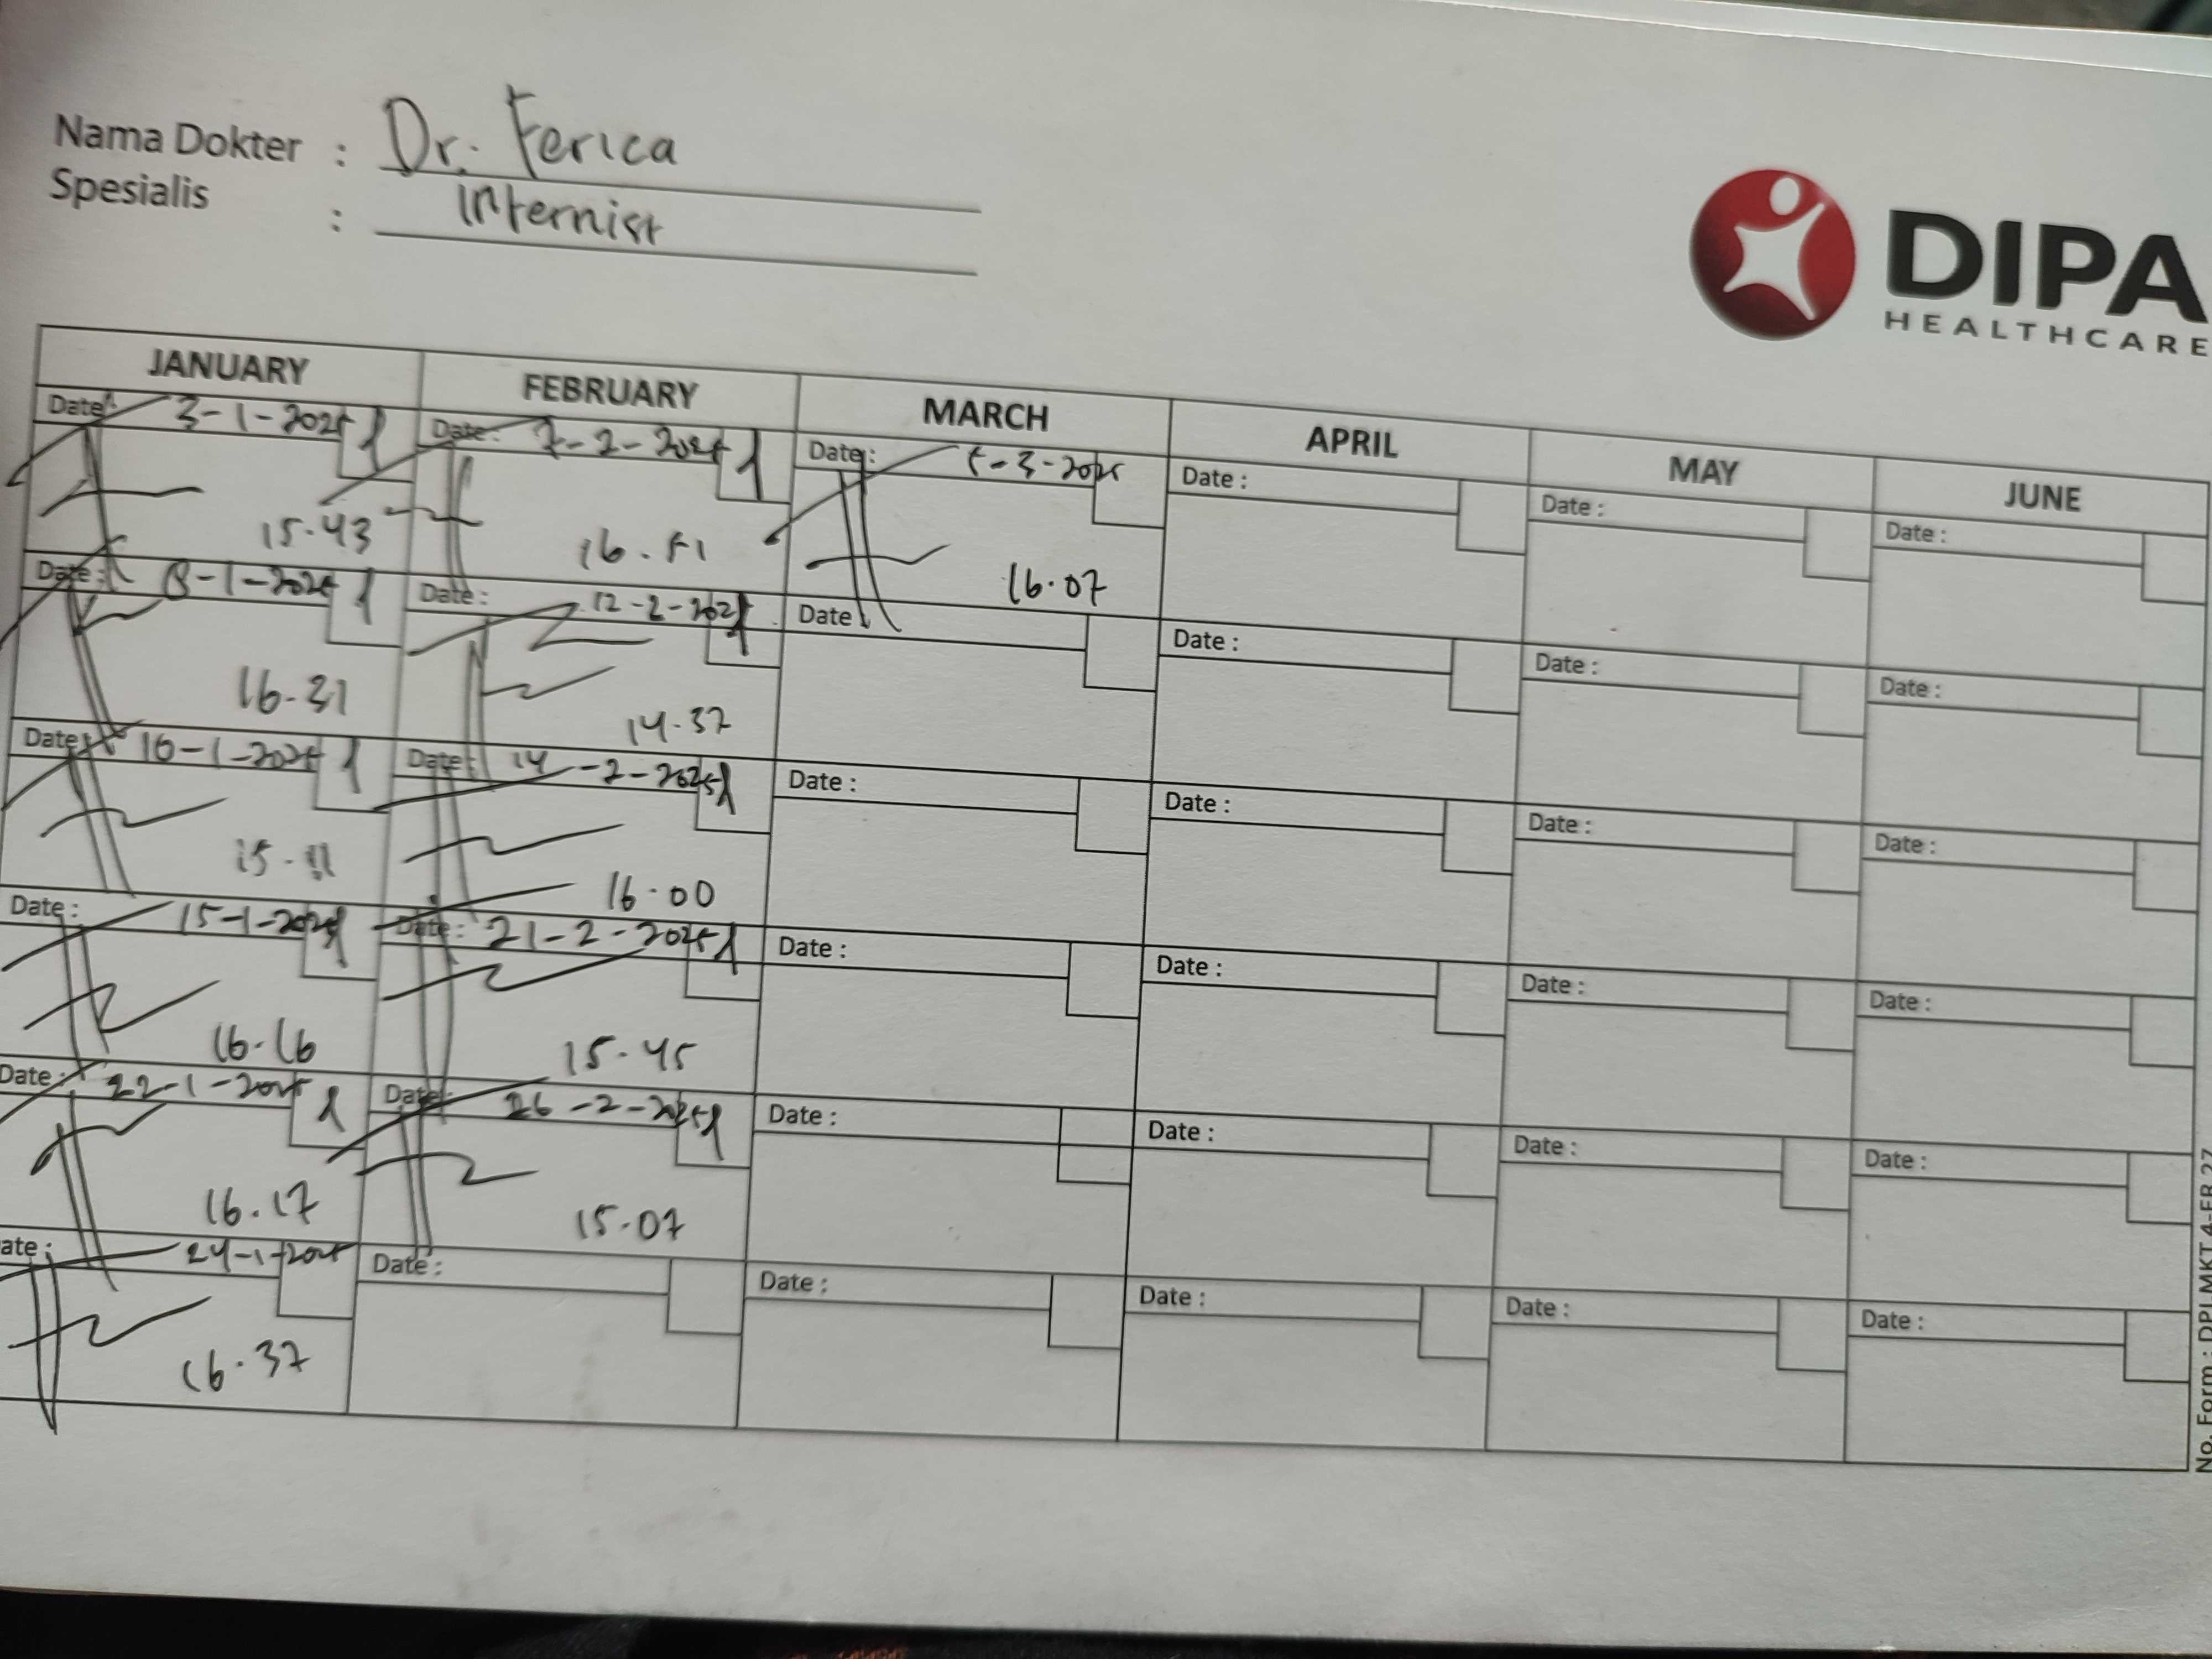 Nama Dokter : Dr. Ferica
Spesialis : Internist
DIPA
HEALTHCARE
JANUARY FEBRUARY MARCH APRIL MAY JUNE
Date : 3-1-2025 Date : 7-2-2025 Date : 5-3-2025 Date : Date : Date :
15.43 16.51 16.07
Date : 8-1-2025 Date : 12-2-2025 Date : Date : Date : Date :
16.31 14.37
Date : 10-1-2025 Date : 14-2-2025 Date : Date : Date : Date :
15.11 16.00
Date : 15-1-2025 Date : 21-2-2025 Date : Date : Date : Date :
16.16 15.45
Date : 22-1-2025 Date : 26-2-2025 Date : Date : Date : Date :
16.17 15.07
ate : 24-1-2025 Date : Date : Date : Date : Date :
16.37
No. Form : DPI.MKT.4-FR.27